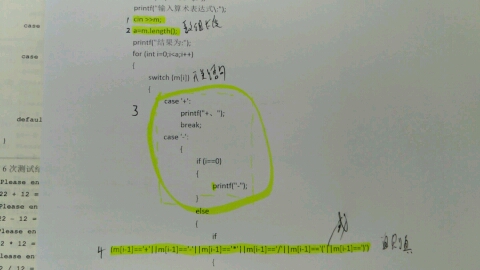 printf("输入算术表达式:");
1 cin >>m;
2 a=m.length(); 数组长度
printf("结果为:");
for (int i=0;i<a;i++)
{
switch (m[i]) 开关语句
{
3 case '+':
printf("+, ");
break;
case '-':
{
if (i==0)
{
printf("-");
}
else
{
if
4 (m[i-1]=='+'||m[i-1]=='-'||m[i-1]=='*'||m[i-1]=='/'||m[i-1]=='('||m[i-1]==')')
{
case
case
defaul
}
6 次测试结
Please en
22 + 12 =
Please en
22 - 12 =
Please en
2 * 12 =
Please en
2 / 12 =